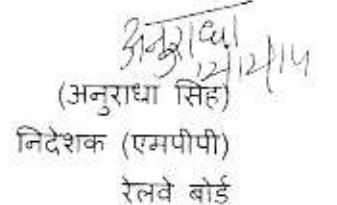 अनुराधा
12/12/14
(अनुराधा सिंह)
निदेशक (एमपीपी)
रेलवे बोर्ड